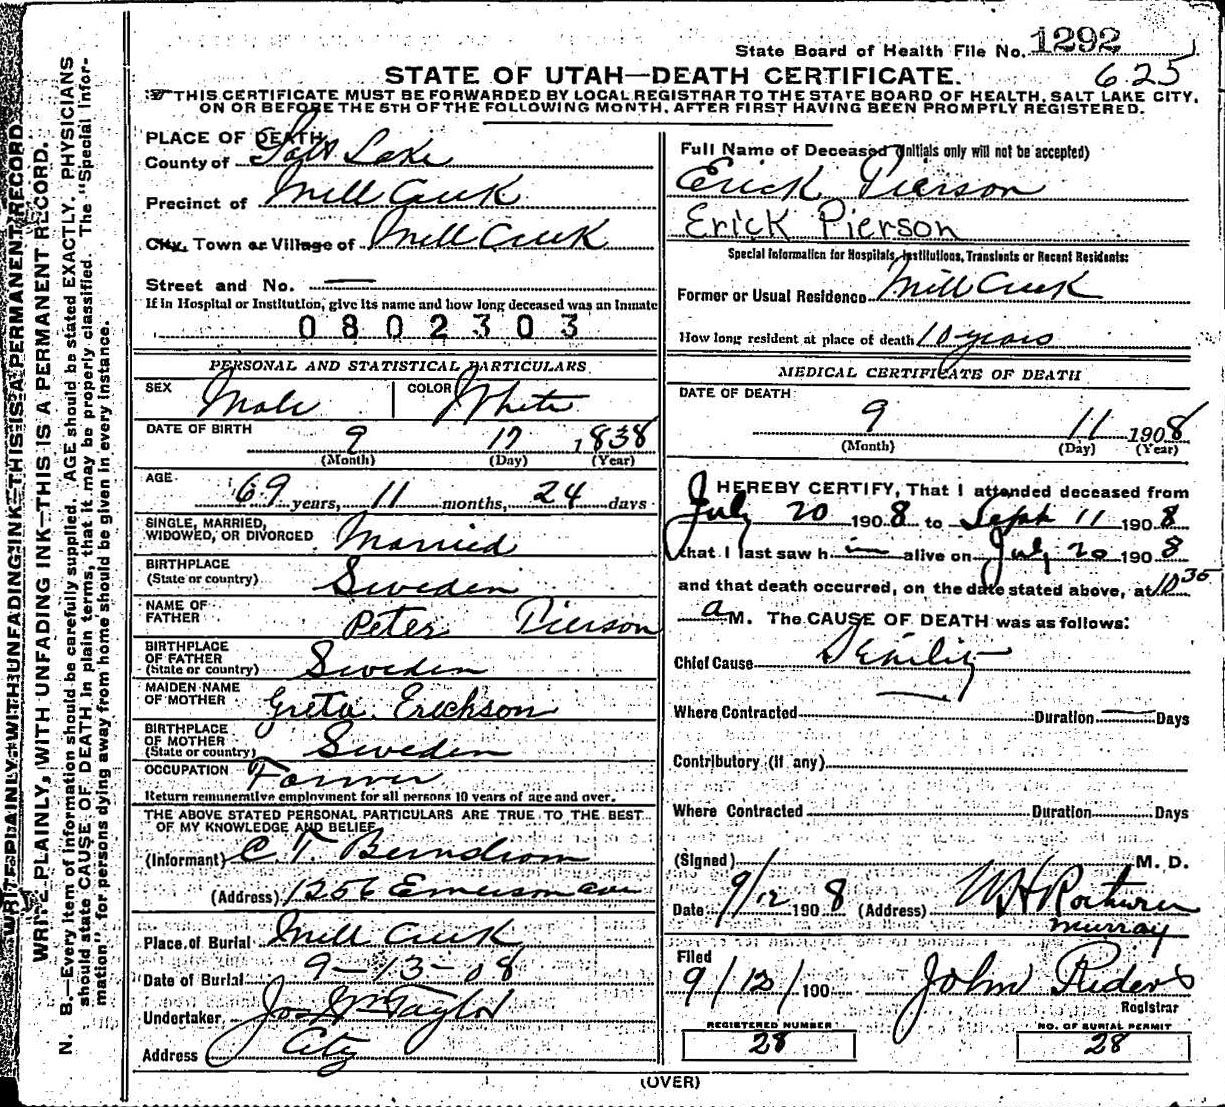 State Board of Health File No. 1292
625
STATE OF UTAH—DEATH CERTIFICATE.
☞THIS CERTIFICATE MUST BE FORWARDED BY LOCAL REGISTRAR TO THE STATE BOARD OF HEALTH, SALT LAKE CITY,
ON OR BEFORE THE 5TH OF THE FOLLOWING MONTH, AFTER FIRST HAVING BEEN PROMPTLY REGISTERED.
WRITE PLAINLY, WITH UNFADING INK—THIS IS A PERMANENT RECORD
WRITE PLAINLY, WITH UNFADING INK—THIS IS A PERMANENT RECORD.
N. B.—Every item of information should be carefully supplied. AGE should be stated EXACTLY. PHYSICIANS
should state CAUSE OF DEATH in plain terms, that it may be properly classified. The "Special Infor-
mation" for persons dying away from home should be given in every instance.
PLACE OF DEATH
County of Salt Lake
Precinct of Mill Creek
City, Town or Village of Mill Creek
Street and No. —
If in Hospital or Institution, give its name and how long deceased was an Inmate
0802303
PERSONAL AND STATISTICAL PARTICULARS
SEX Male COLOR White
DATE OF BIRTH 9 17 1838
(Month) (Day) (Year)
AGE 69 years, 11 months, 24 days
SINGLE, MARRIED,
WIDOWED, OR DIVORCED Married
BIRTHPLACE
(State or country) Sweden
NAME OF
FATHER Peter Pierson
BIRTHPLACE
OF FATHER
(State or country) Sweden
MAIDEN NAME
OF MOTHER Greta Erickson
BIRTHPLACE
OF MOTHER
(State or country) Sweden
OCCUPATION Farmer
Return remunerative employment for all persons 10 years of age and over.
THE ABOVE STATED PERSONAL PARTICULARS ARE TRUE TO THE BEST
OF MY KNOWLEDGE AND BELIEF
(Informant) C. T. Berndrom
(Address) 1256 Emerson ave
Place of Burial Mill Creek
Date of Burial 9-13-08
Undertaker Jos Wm Taylor
Address City
Full Name of Deceased (Initials only will not be accepted)
Erick Pierson
Erick Pierson
Special Information for Hospitals, Institutions, Transients or Recent Residents:
Former or Usual Residence Mill Creek
How long resident at place of death 10 years
MEDICAL CERTIFICATE OF DEATH
DATE OF DEATH
9 11 1908
(Month) (Day) (Year)
I HEREBY CERTIFY, That I attended deceased from
July 20 1908 to Sept 11 1908
that I last saw him alive on July 20 1908
and that death occurred, on the date stated above, at 10 35
a M. The CAUSE OF DEATH was as follows:
Chief Cause Senility
Where Contracted Duration — Days
Contributory (if any)
Where Contracted Duration Days
(Signed) M. D.
Date 9/12 1908 (Address) Murray
Filed
9/12/190 John Riders
Registrar
REGISTERED NUMBER
28
NO. OF BURIAL PERMIT
28
(OVER)